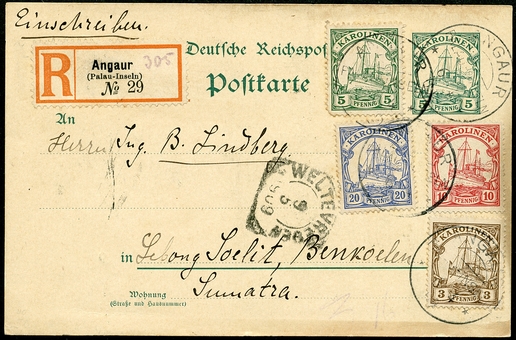 Einschreiben.
R
Angaur
(Palau-Inseln)
305
№ 29
Deutsche Reichspost
Postkarte
KAROLINEN
5 5
PFENNIG
KAROLINEN
5 5
PFENNIG
ANGAUR
An
Herrn Ing. B. Lindberg
KAROLINEN
20 20
PFENNIG
KAROLINEN
10 10
PFENNIG
WELTEVREDEN
in Lebong Soelit, Benkoelen
Sumatra.
KAROLINEN
3 3
PFENNIG
Wohnung
(Straße und Hausnummer)